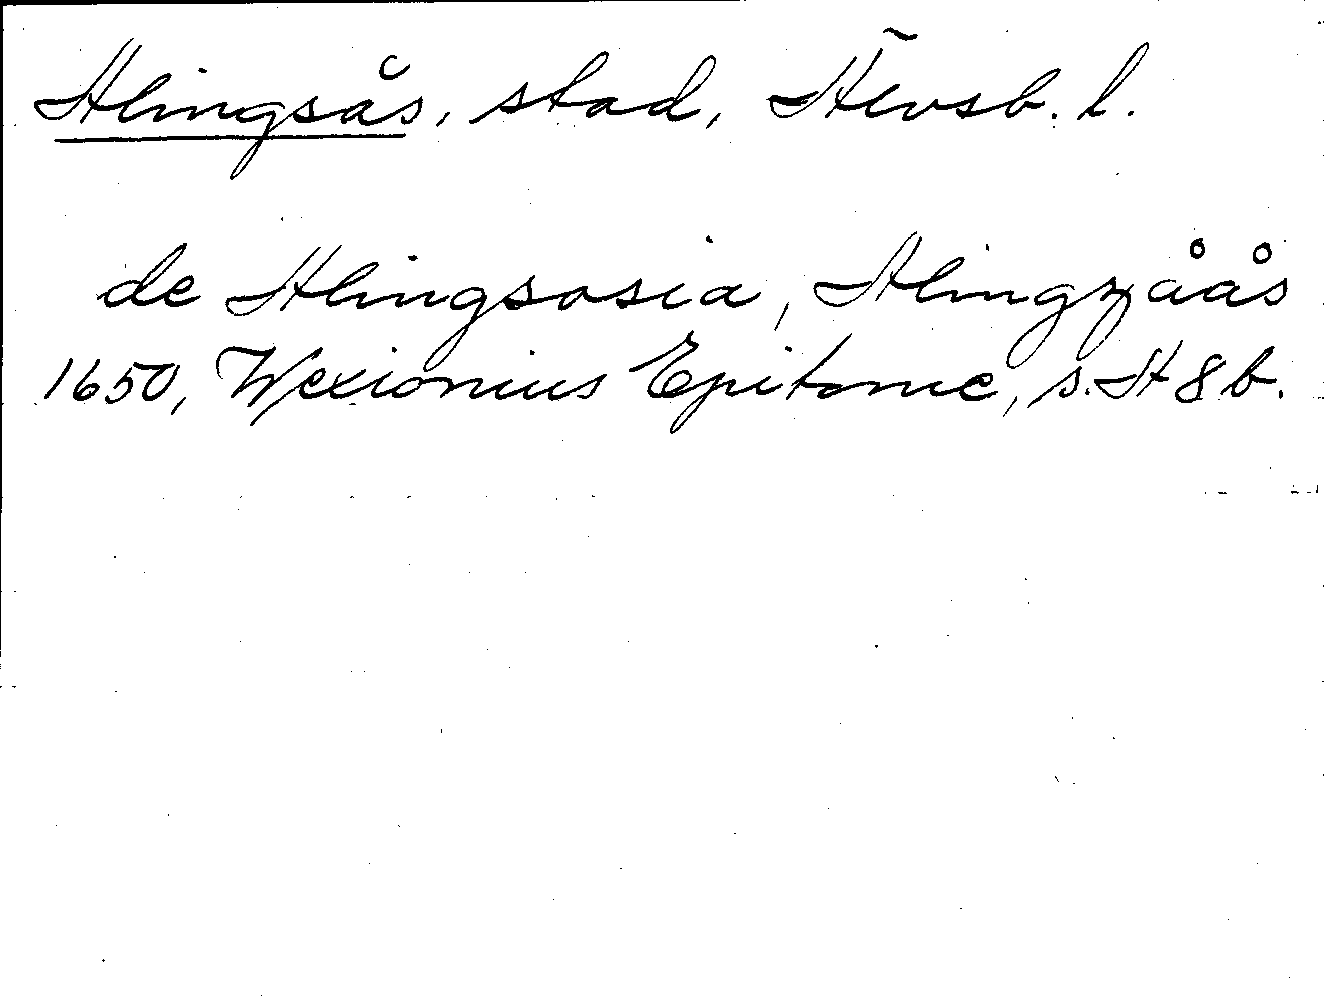 Alingsås, stad, Älvsb. l.
de Alingsosia, Alingzåås
1650, Wexionius Epitome, s. A 8 b.